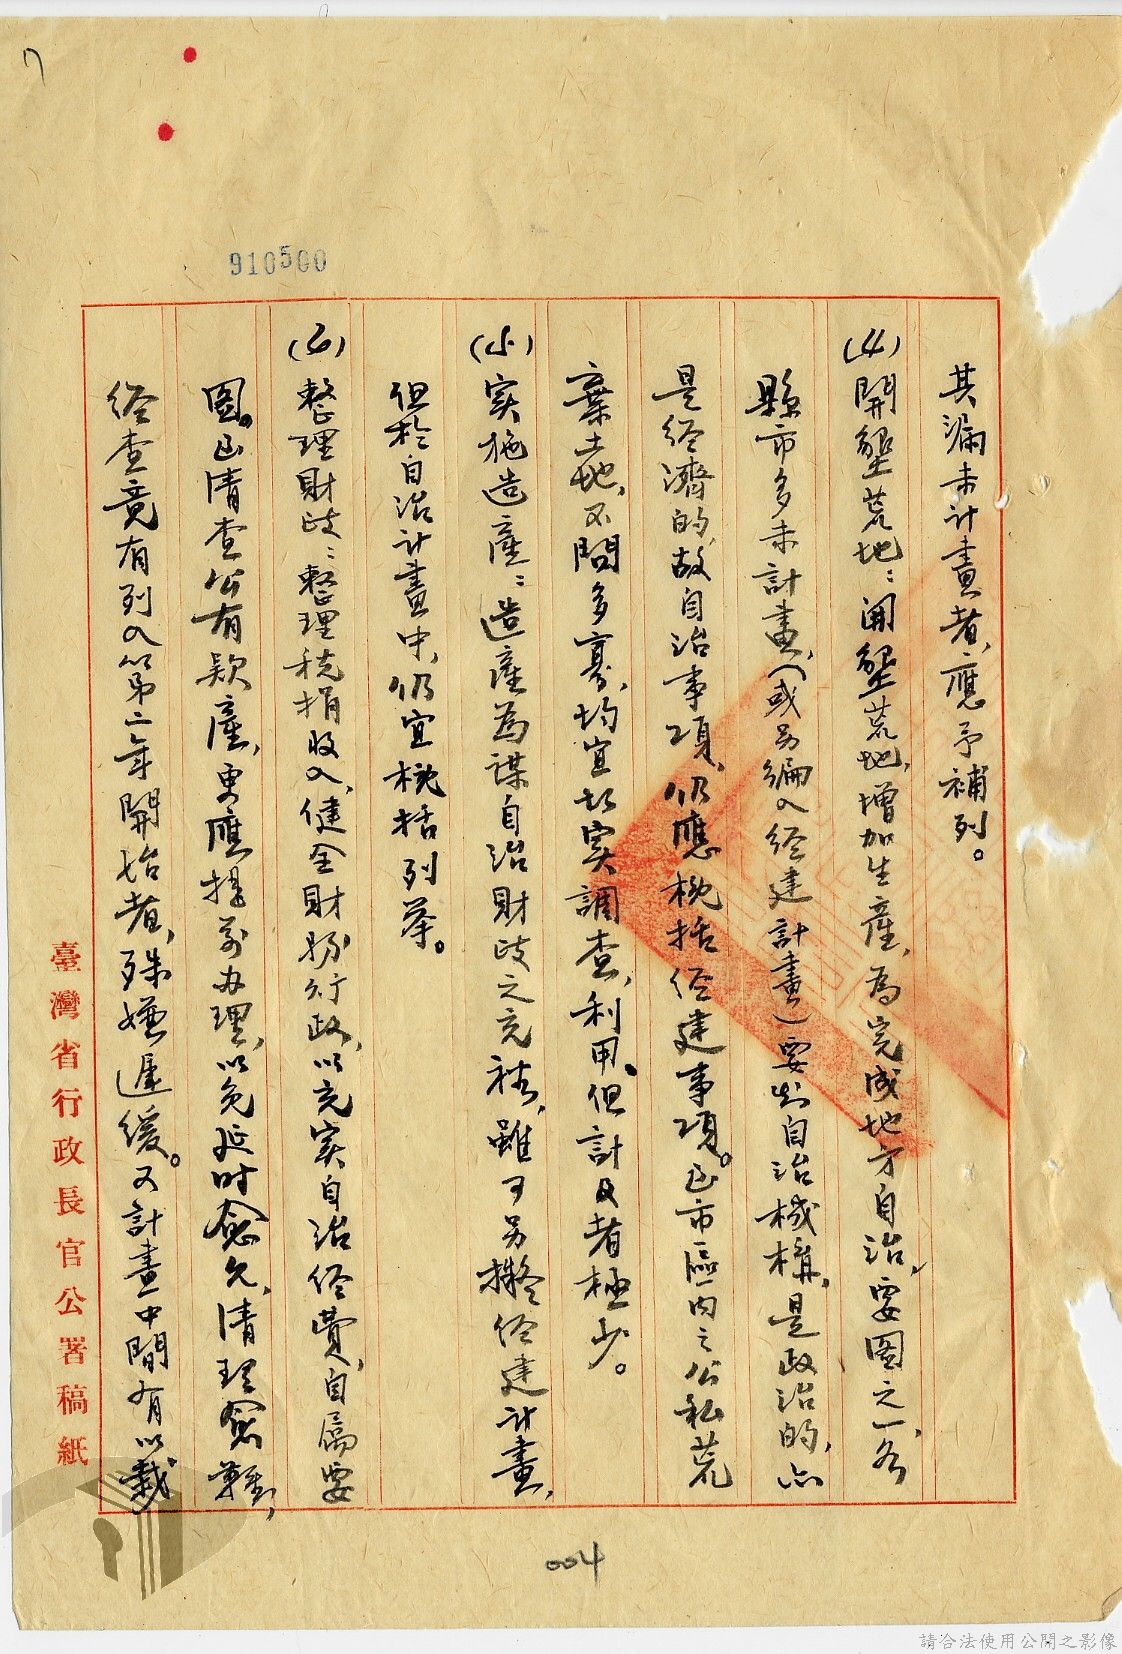 7
910500
其漏未計畫者,應予補列。
(4)開墾荒地:開墾荒地,增加生產,為完成地方自治,要圖之一,各
縣市多未計畫,(或另編入經建計畫)要知自治機構,是政治的,亦
是經濟的,故自治事項,仍應概括經建事項。至市區內之公私荒
棄土地,不問多寡,均宜切实調查,利用。但計及者極少。
实施造產:造產為謀自治財政之充裕,雖可另擬經建計畫,
但於自治計畫中,仍宜概括列举。
整理財政:整理税捐收入,健全財務行政,以充实自治經費,自屬要
圖。至清查公有款產,更應提前办理,以免延时愈久,清理愈難,
經查竟有列入第二年開始者,殊嫌遲緩。又計畫中間有以裁
臺灣省行政長官公署稿紙
004
請合法使用公開之影像